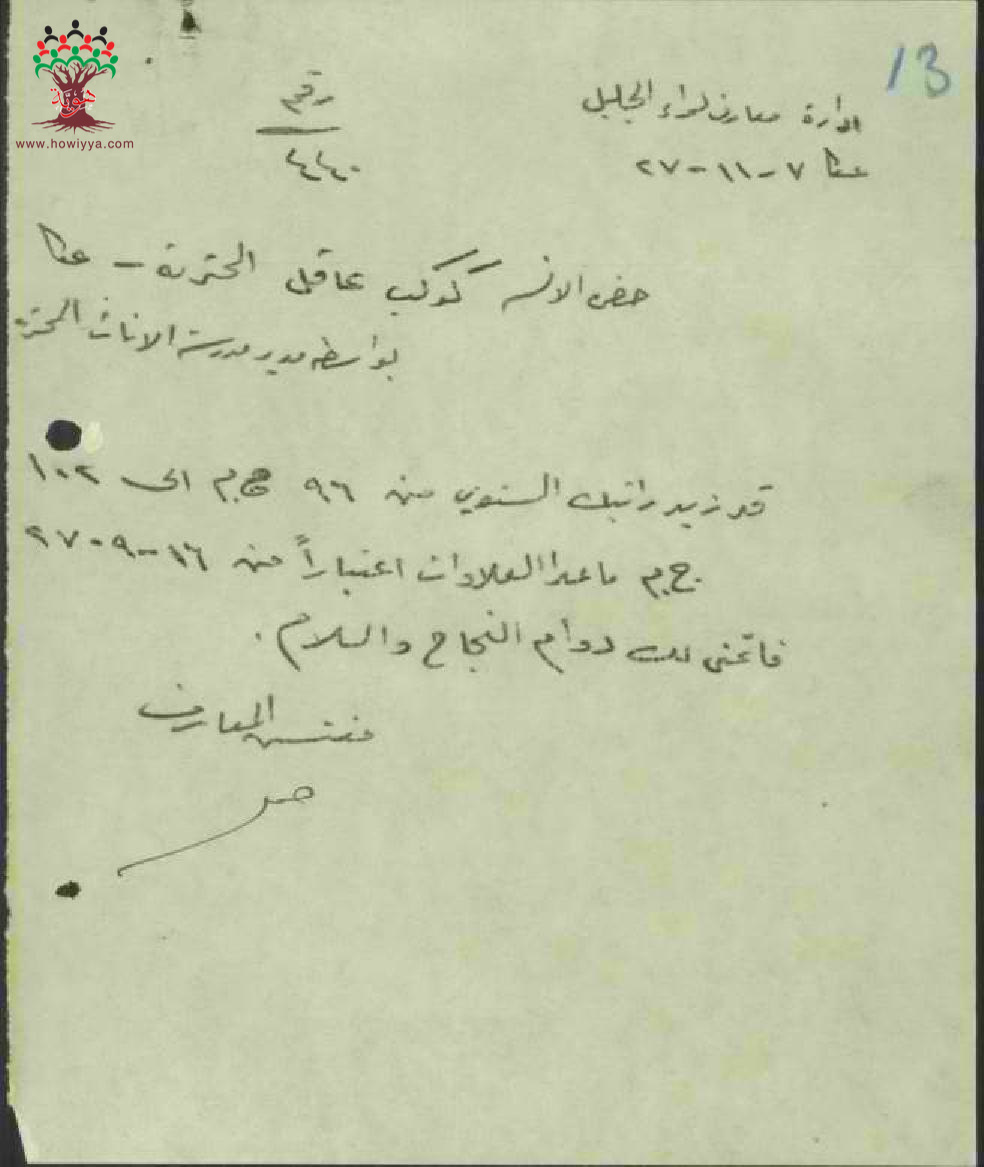 13
هوية
www.howiyya.com
ادارة معارف لواء الجليل
عكا ٧-١١-٢٧
رقم
٤٤٤٠
حضرة الانسه كوكب عاقل المحترمة - عكا
بواسطه مدير مدرسة الاناث المحترم
قد زيد راتبك السنوي من ٩٦ ج.م الى ١٠٢
ج.م ما عدا العلاوات اعتباراً من ١٦-٩-٢٧
فاتمنى لك دوام النجاح والسلام.
مفتش المعارف